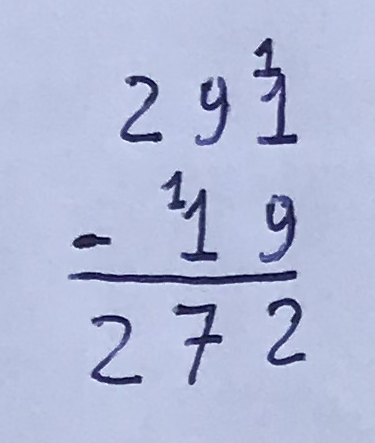 1
2 9 1
- 1 1 9
2 7 2